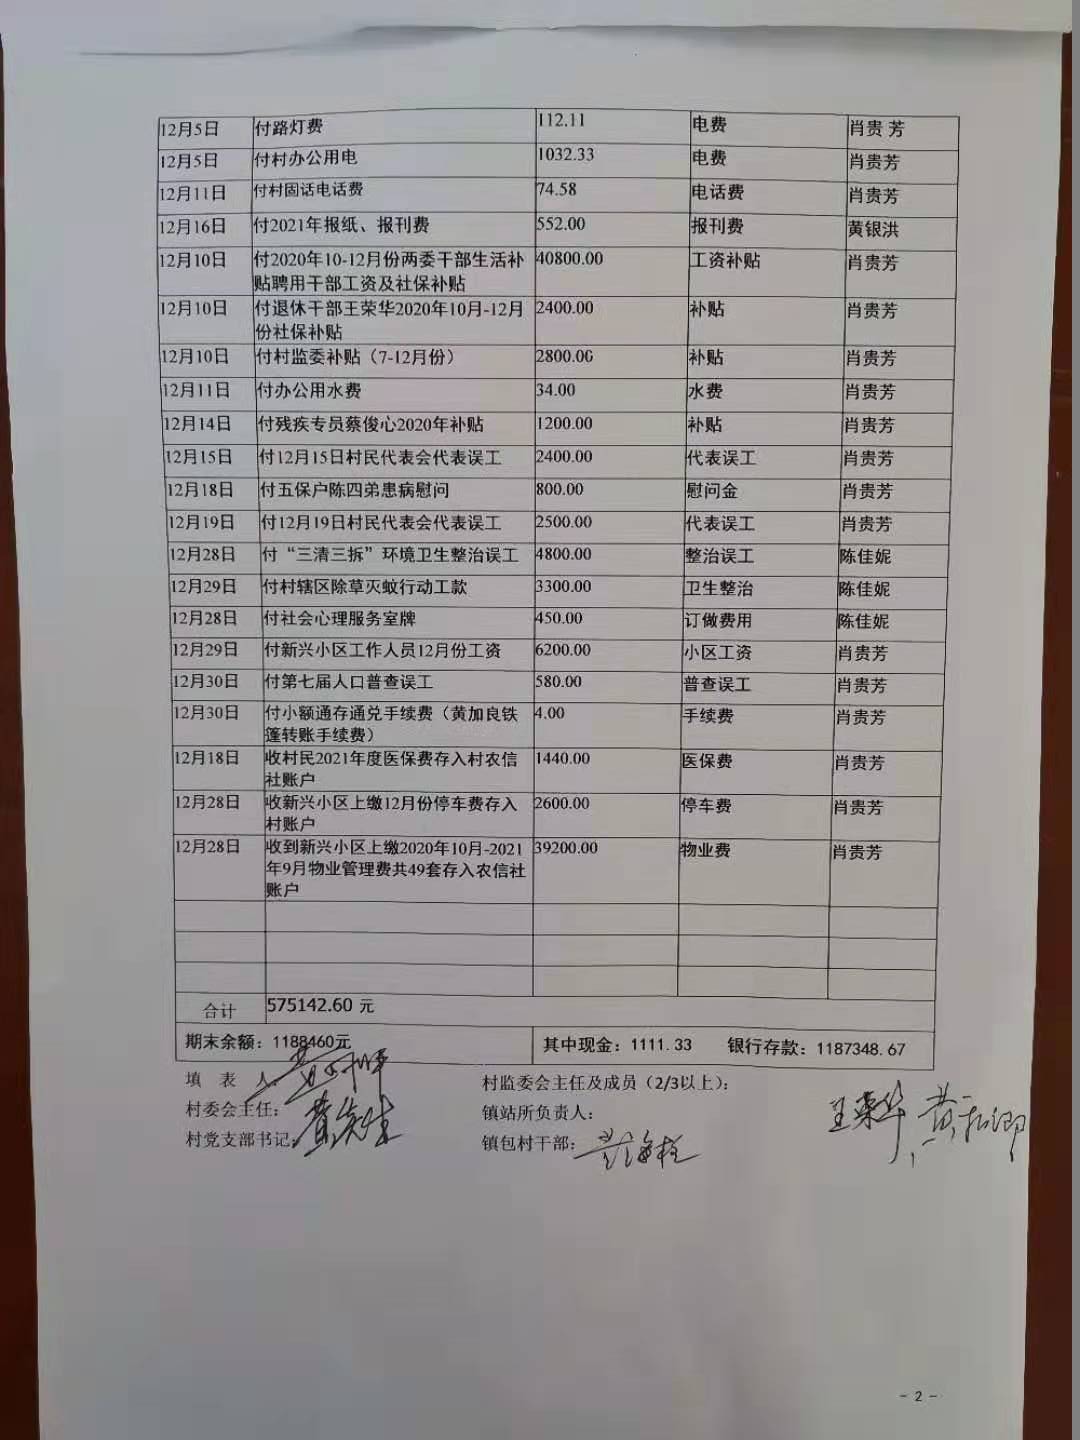 12月5日 付路灯费 112.11 电费 肖贵 芳
12月5日 付村办公用电 1032.33 电费 肖贵芳
12月11日 付村固话电话费 74.58 电话费 肖贵芳
12月16日 付2021年报纸、报刊费 552.00 报刊费 黄银洪
12月10日 付2020年10-12月份两委干部生活补 40800.00 工资补贴 肖贵芳
贴聘用干部工资及社保补贴
12月10日 付退休干部王荣华2020年10月-12月 2400.00 补贴 肖贵芳
份社保补贴
12月10日 付村监委补贴（7-12月份） 2800.00 补贴 肖贵芳
12月11日 付办公用水费 34.00 水费 肖贵芳
12月14日 付残疾专员蔡俊心2020年补贴 1200.00 补贴 肖贵芳
12月15日 付12月15日村民代表会代表误工 2400.00 代表误工 肖贵芳
12月18日 付五保户陈四弟患病慰问 800.00 慰问金 肖贵芳
12月19日 付12月19日村民代表会代表误工 2500.00 代表误工 肖贵芳
12月28日 付“三清三拆”环境卫生整治误工 4800.00 整治误工 陈佳妮
12月29日 付村辖区除草灭蚊行动工款 3300.00 卫生整治 陈佳妮
12月28日 付社会心理服务室牌 450.00 订做费用 陈佳妮
12月29日 付新兴小区工作人员12月份工资 6200.00 小区工资 肖贵芳
12月30日 付第七届人口普查误工 580.00 普查误工 肖贵芳
12月30日 付小额通存通兑手续费（黄加良铁 4.00 手续费 肖贵芳
篷转账手续费）
12月18日 收村民2021年度医保费存入村农信 1440.00 医保费 肖贵芳
社账户
12月28日 收新兴小区上缴12月份停车费存入 2600.00 停车费 肖贵芳
村账户
12月28日 收到新兴小区上缴2020年10月-2021 39200.00 物业费 肖贵芳
年9月物业管理费共49套存入农信社
账户
合计 575142.60 元
期末余额：1188460元 其中现金：1111.33 银行存款：1187348.67
填 表 人： 村监委会主任及成员（2/3以上）：
村委会主任： 镇站所负责人： 王荣华
村党支部书记： 镇包村干部：
- 2 -